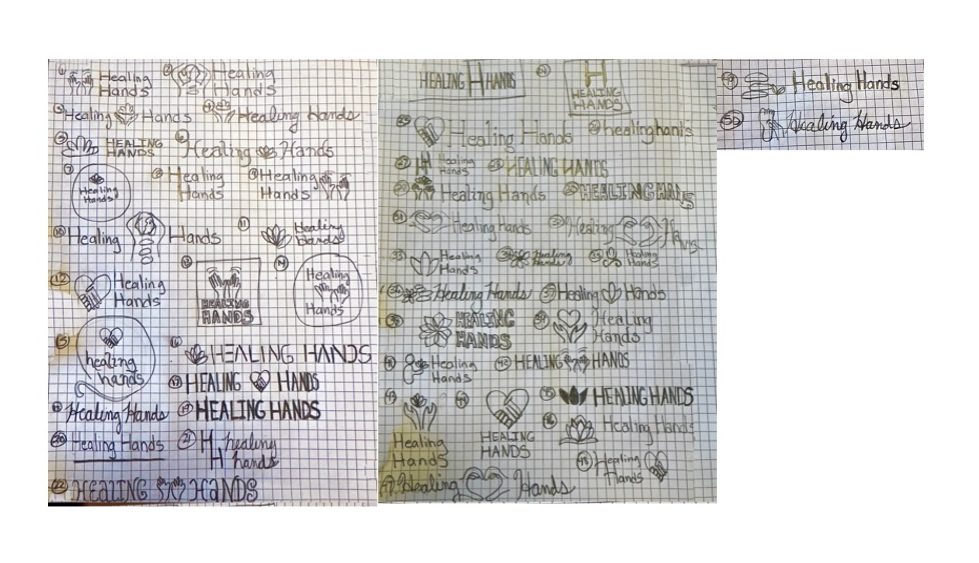 1 Healing
Hands
2 Healing
Hands
3 Healing Hands
4 Healing Hands
5 HEALING
HANDS
6 Healing Hands
7 Healing
Hands
8 Healing
Hands
9 Healing
Hands
10 Healing Hands
11 Healing
Hands
12 Healing
Hands
13 HEALING
HANDS
14 Healing
Hands
15 healing
hands
16 HEALING HANDS
17 HEALING HANDS
18 Healing Hands
19 HEALING HANDS
20 Healing Hands
21 H healing
H hands
22 HEALING HaNDS
HEALING H HANDS
24 H
HEALING
HANDS
25 Healing Hands
26 healinghands
27 H Healing
Hands
28 HEALING HANDS
29 Healing Hands
30 HEALING HANDS
31 Healing Hands
32 Healing Hands
33 Healing
Hands
34 Healing
Hands
35 Healing
Hands
36 Healing Hands
37 Healing Hands
38 HEALING
HANDS
39 Healing
Hands
Healing
Hands
HEALING HANDS
Healing
Hands
HEALING
HANDS
HEALING HANDS
Healing Hands
Healing
Hands
Healing Hands
49 Healing Hands
50 Healing Hands